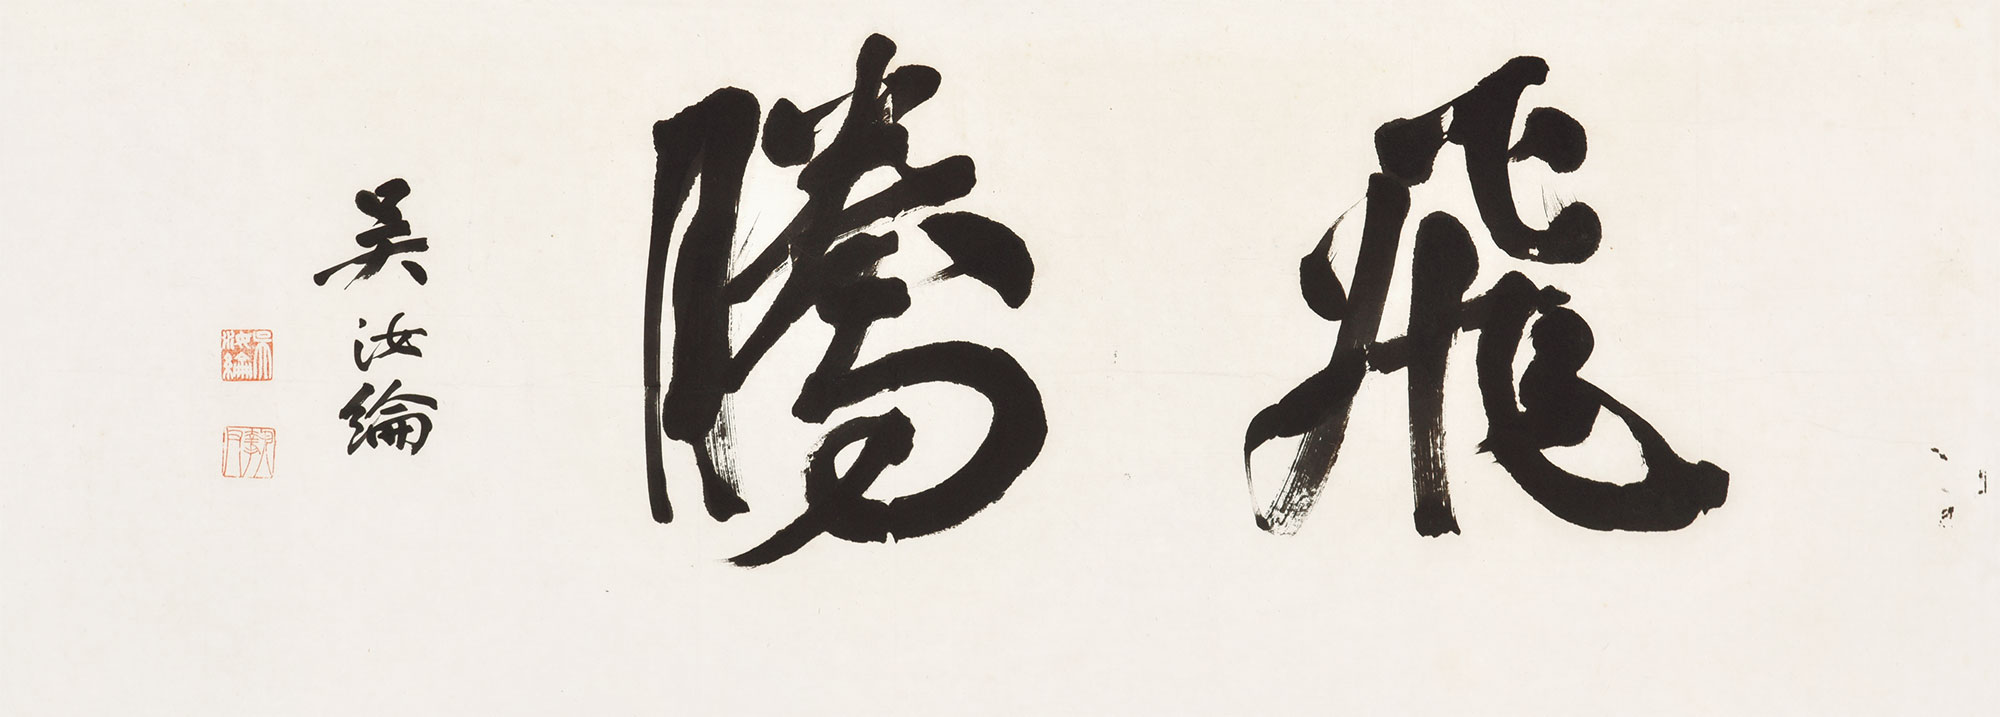 飛騰
吳汝綸
吳汝綸
摯父